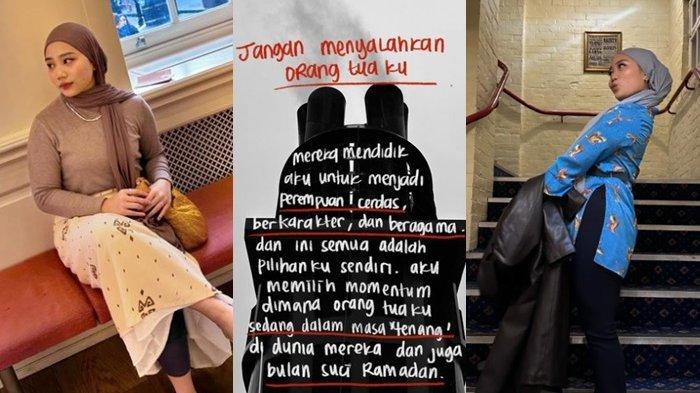 Jangan menyalahkan
orang tua ku
mereka mendidik
aku untuk menjadi
perempuan cerdas,
berkarakter, dan beragama.
dan ini semua adalah
pilihanku sendiri. aku
memilih momentum
dimana orang tua ku
sedang dalam masa "tenang"
di dunia mereka dan juga
bulan suci Ramadan.